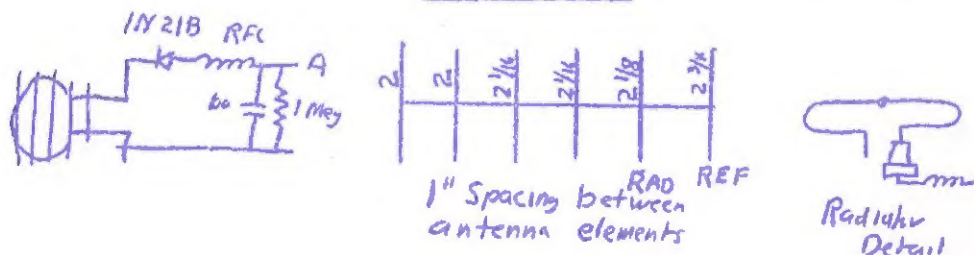 1N21B RFC
A
60
1 Meg
2 2 2 1/16 2 1/16 2 1/8 2 3/16
RAD REF
1" Spacing between
antenna elements
Radiator
Detail